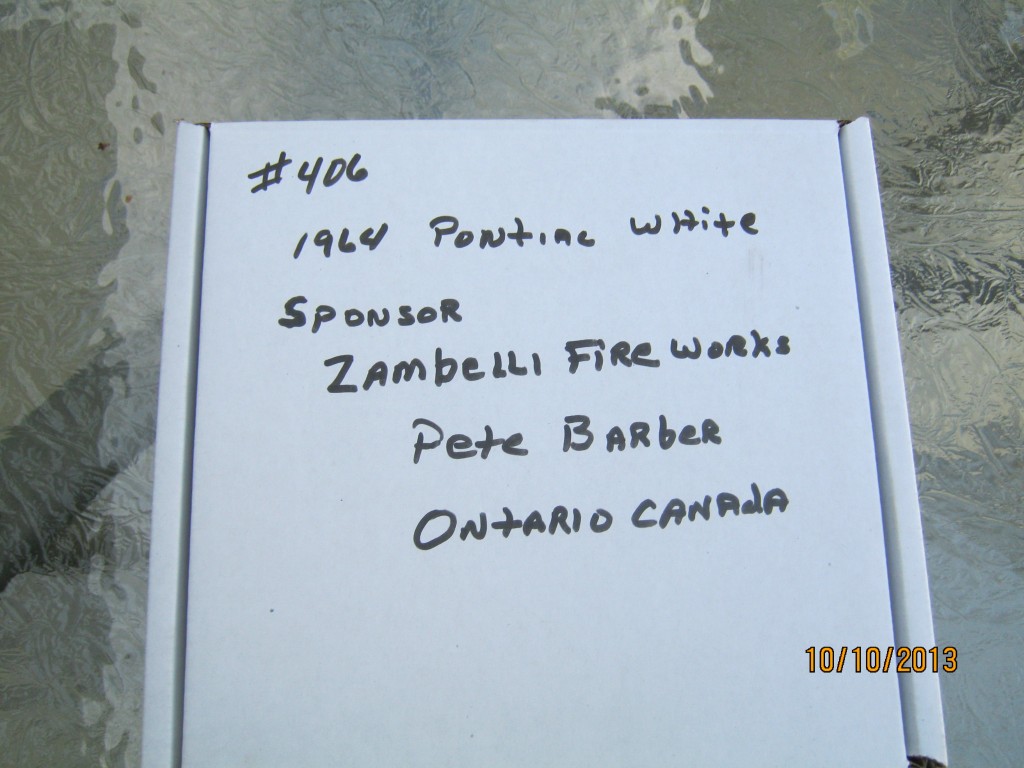 #406
1964 Pontiac White
Sponsor
Zambelli Fireworks
Pete Barber
Ontario Canada
10/10/2013